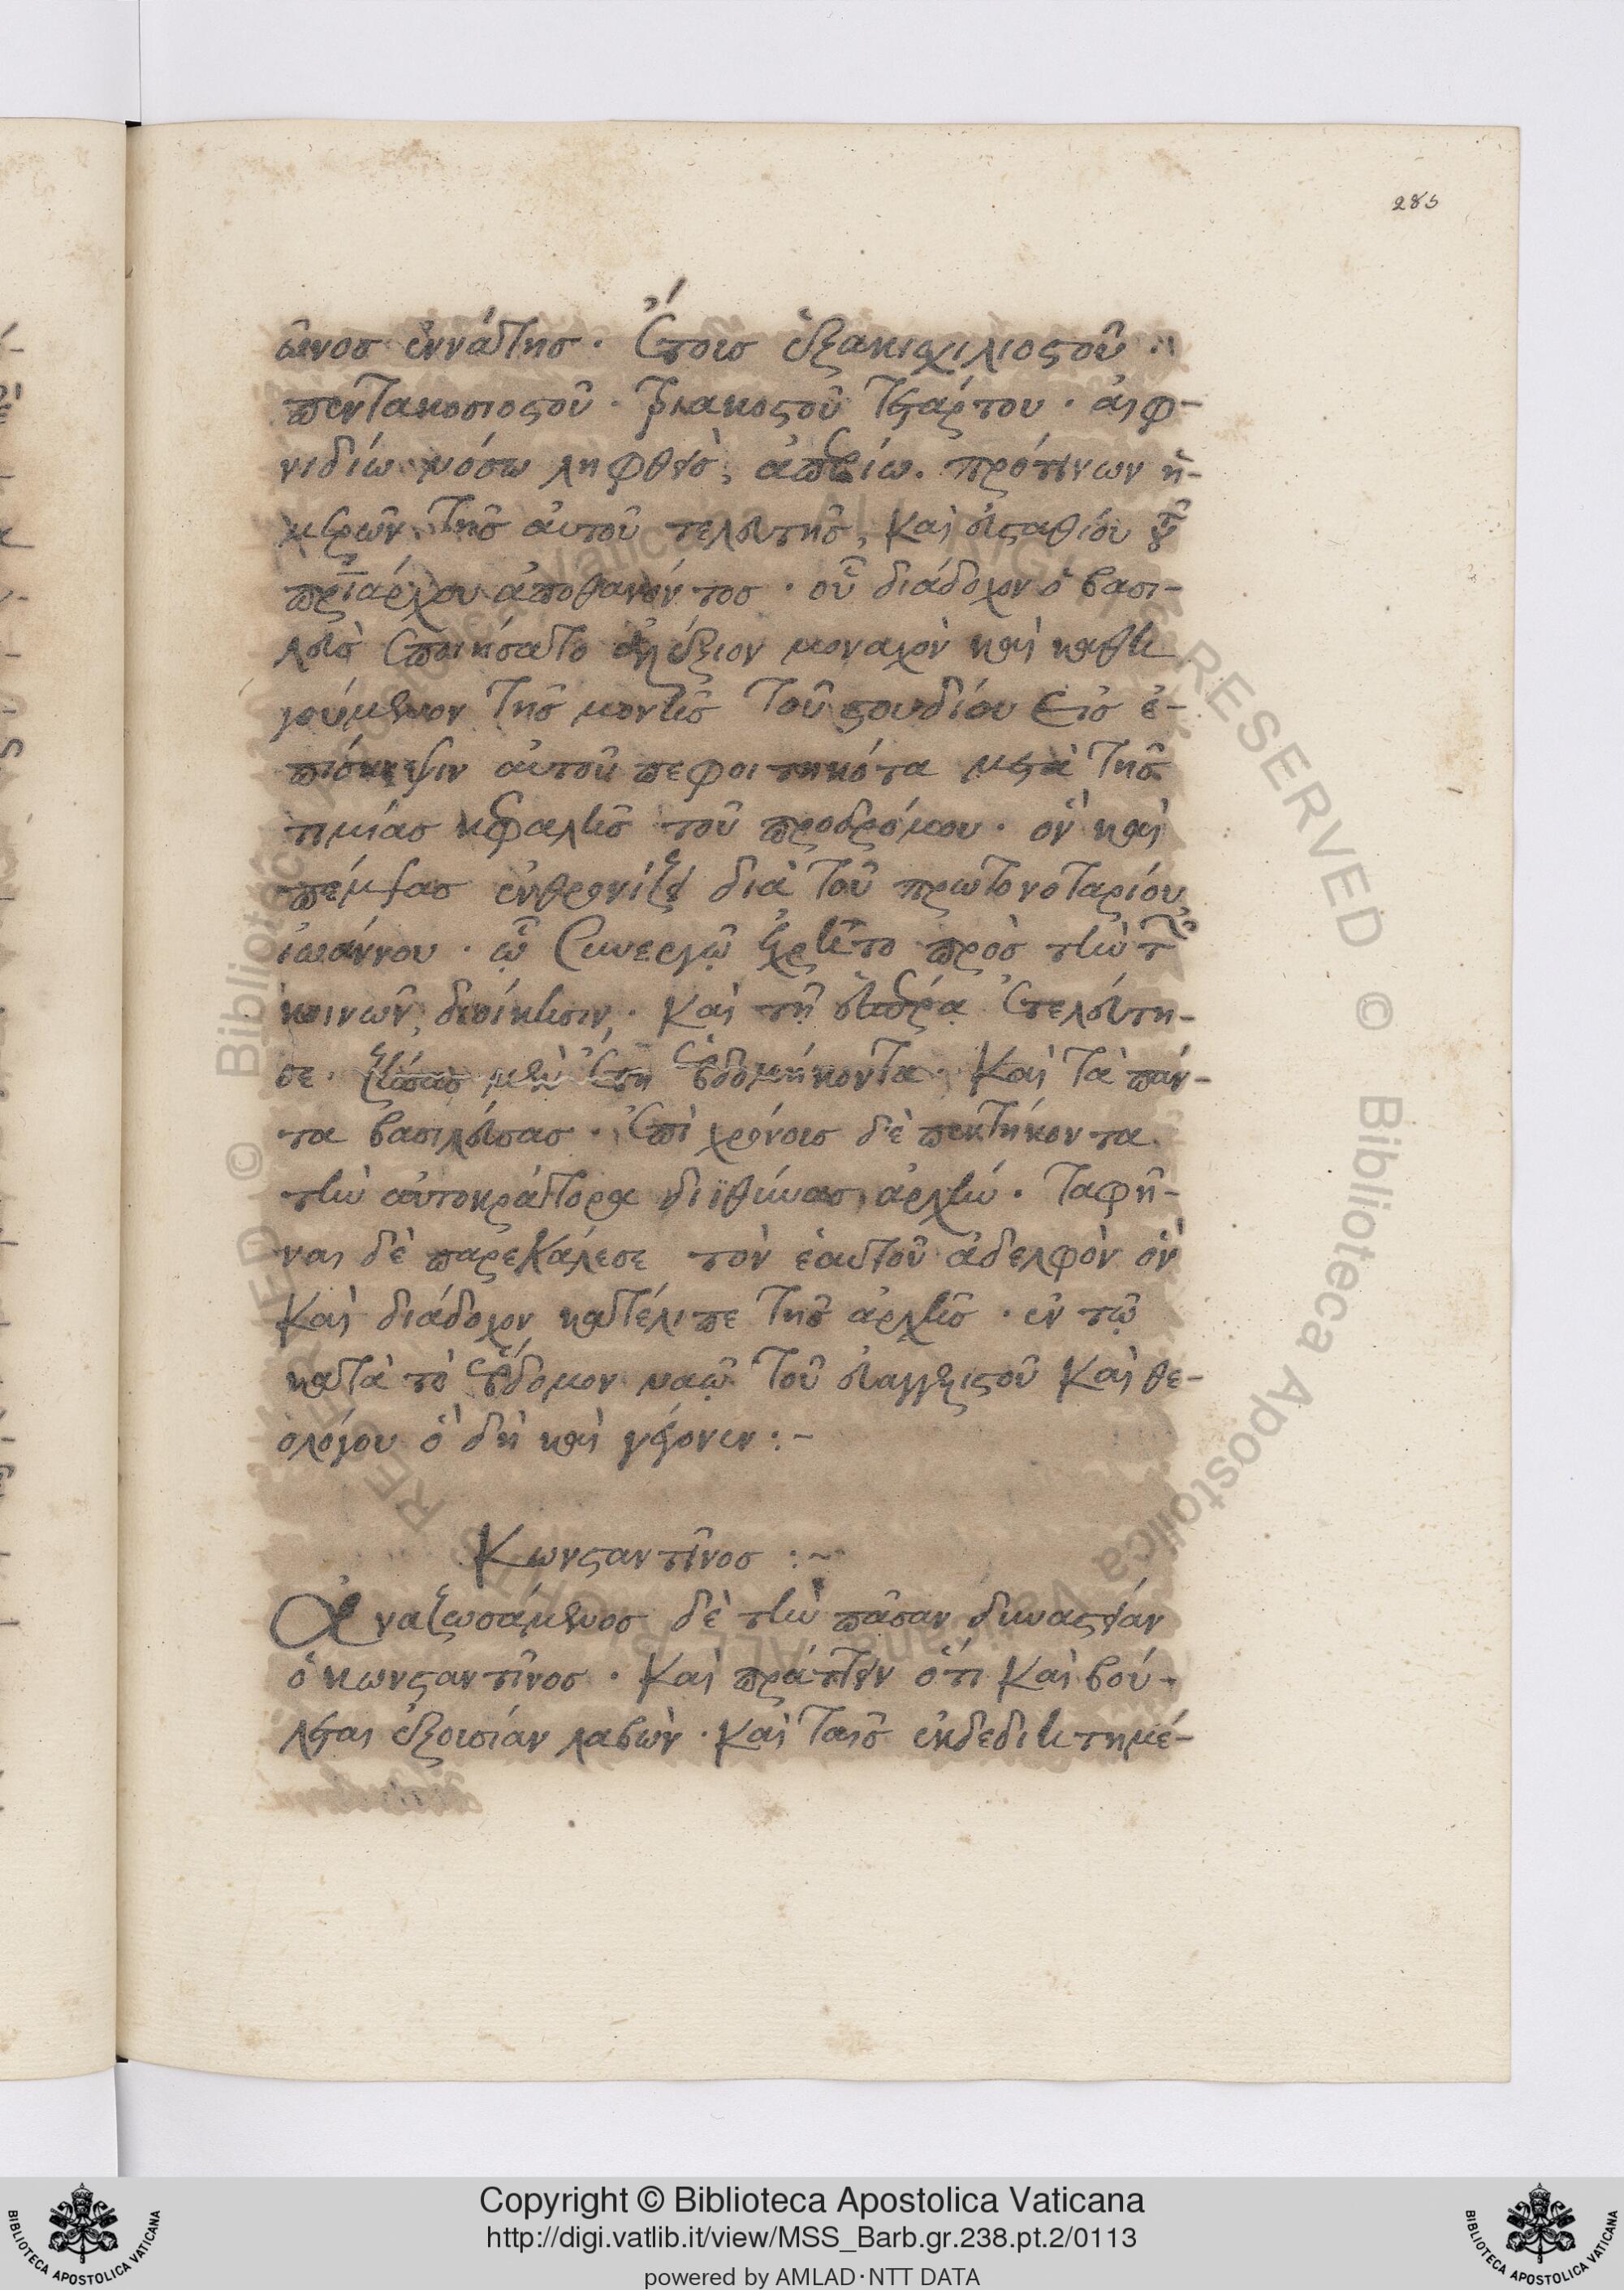 285
ῶνος ἐννάτης. ἔτους ἑξακισχιλιοστοῦ.
πεντακοσιοστοῦ. τριακοστοῦ τετάρτου. αἰφ-
νιδίω νόσω ληφθεὶς, ἀπεβίω. πρό τινων ἡ-
μερῶν τῆς αὐτοῦ τελευτῆς, καὶ εὐσταθίου τοῦ
πριάρχου ἀποθανόντος. οὗ διάδοχον ὁ βασι-
λεὺς ἐποιήσατο ἀλέξιον μοναχὸν καὶ καθη
γούμενον τῆς μονῆς τοῦ στουδίου εἰς ἐ-
πίσκεψιν αὐτοῦ πεφοιτηκότα μετὰ τῆς
τιμίας κεφαλῆς τοῦ προδρόμου. ὃν καὶ
πέμψας ἐνθρονίζει διὰ τοῦ πρωτονοταρίου
ἰωάννου. ᾧ συνεργῷ ἐχρῆτο πρὸς τὴν τῶν
κοινῶν διοίκησιν. καὶ τῇ ἑσπέρᾳ ἐτελεύτη-
σε. ζήσας μὲν ἔτη ἑβδομήκοντα. καὶ τὰ πάν-
τα βασιλεύσας. ἐπὶ χρόνοις δὲ πεντήκοντα
τὴν αὐτοκράτορα διϊθύνας ἀρχήν. ταφῆ-
ναι δὲ παρεκάλεσε τὸν ἑαυτοῦ ἀδελφὸν ὃν
καὶ διάδοχον κατέλιπε τῆς ἀρχῆς. ἐν τῷ
κατὰ τὸ ἕβδομον ναῷ τοῦ εὐαγγελιστοῦ καὶ θε-
ολόγου ὃ δὴ καὶ γέγονεν:~
Κωνσταντῖνος:~
Ἀναζωσάμενος δὲ τὴν πᾶσαν δυναστείαν
ὁ κωνσταντῖνος. καὶ πράττειν ὅτι καὶ βού-
λεται ἐξουσίαν λαβὼν. καὶ ταῖς ἐκδεδιητημέ-
Copyright © Biblioteca Apostolica Vaticana
http://digi.vatlib.it/view/MSS_Barb.gr.238.pt.2/0113
powered by AMLAD·NTT DATA